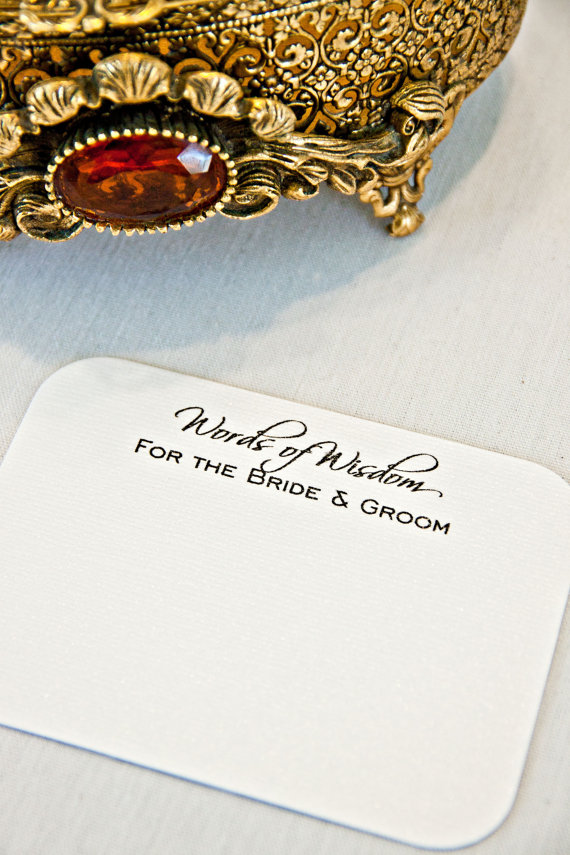 Words of Wisdom
For the Bride & Groom